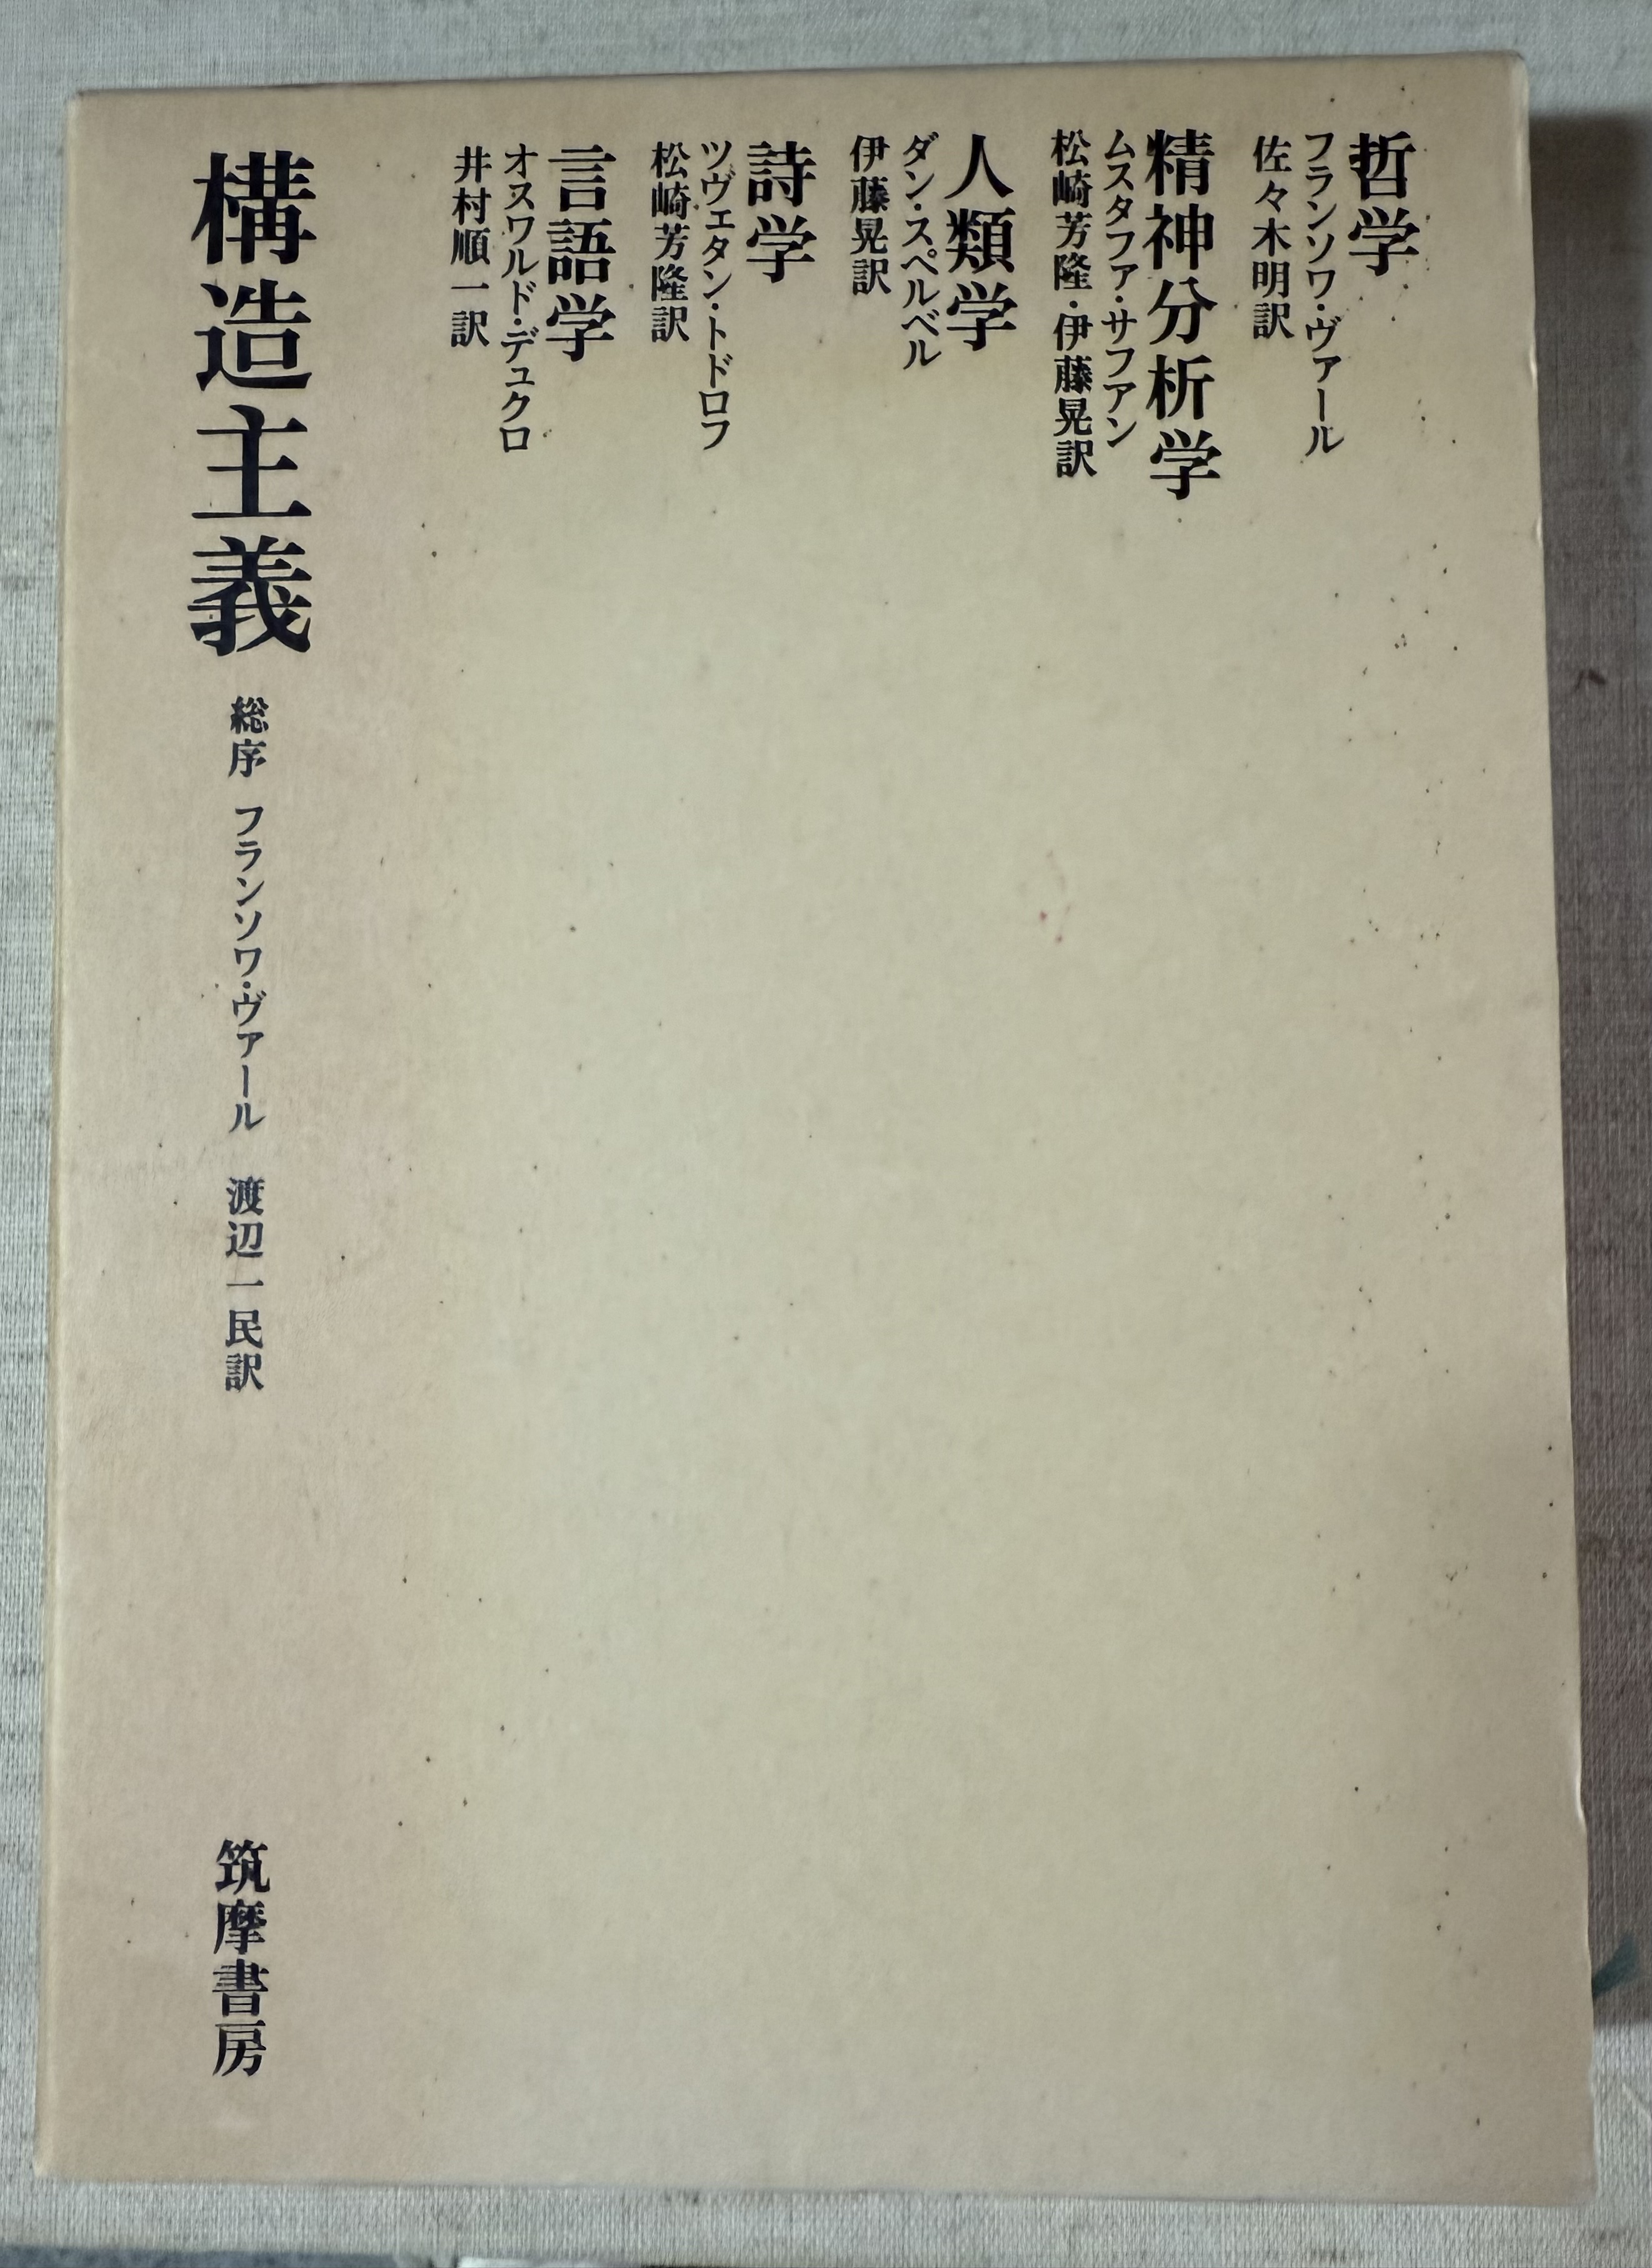 哲学
フランソワ・ヴァール
佐々木明訳
精神分析学
ムスタファ・サフアン
松崎芳隆・伊藤晃訳
人類学
ダン・スペルベル
伊藤晃訳
詩学
ツヴェタン・トドロフ
松崎芳隆訳
言語学
オスワルド・デュクロ
井村順一訳
構造主義 総序 フランソワ・ヴァール 渡辺一民訳
筑摩書房